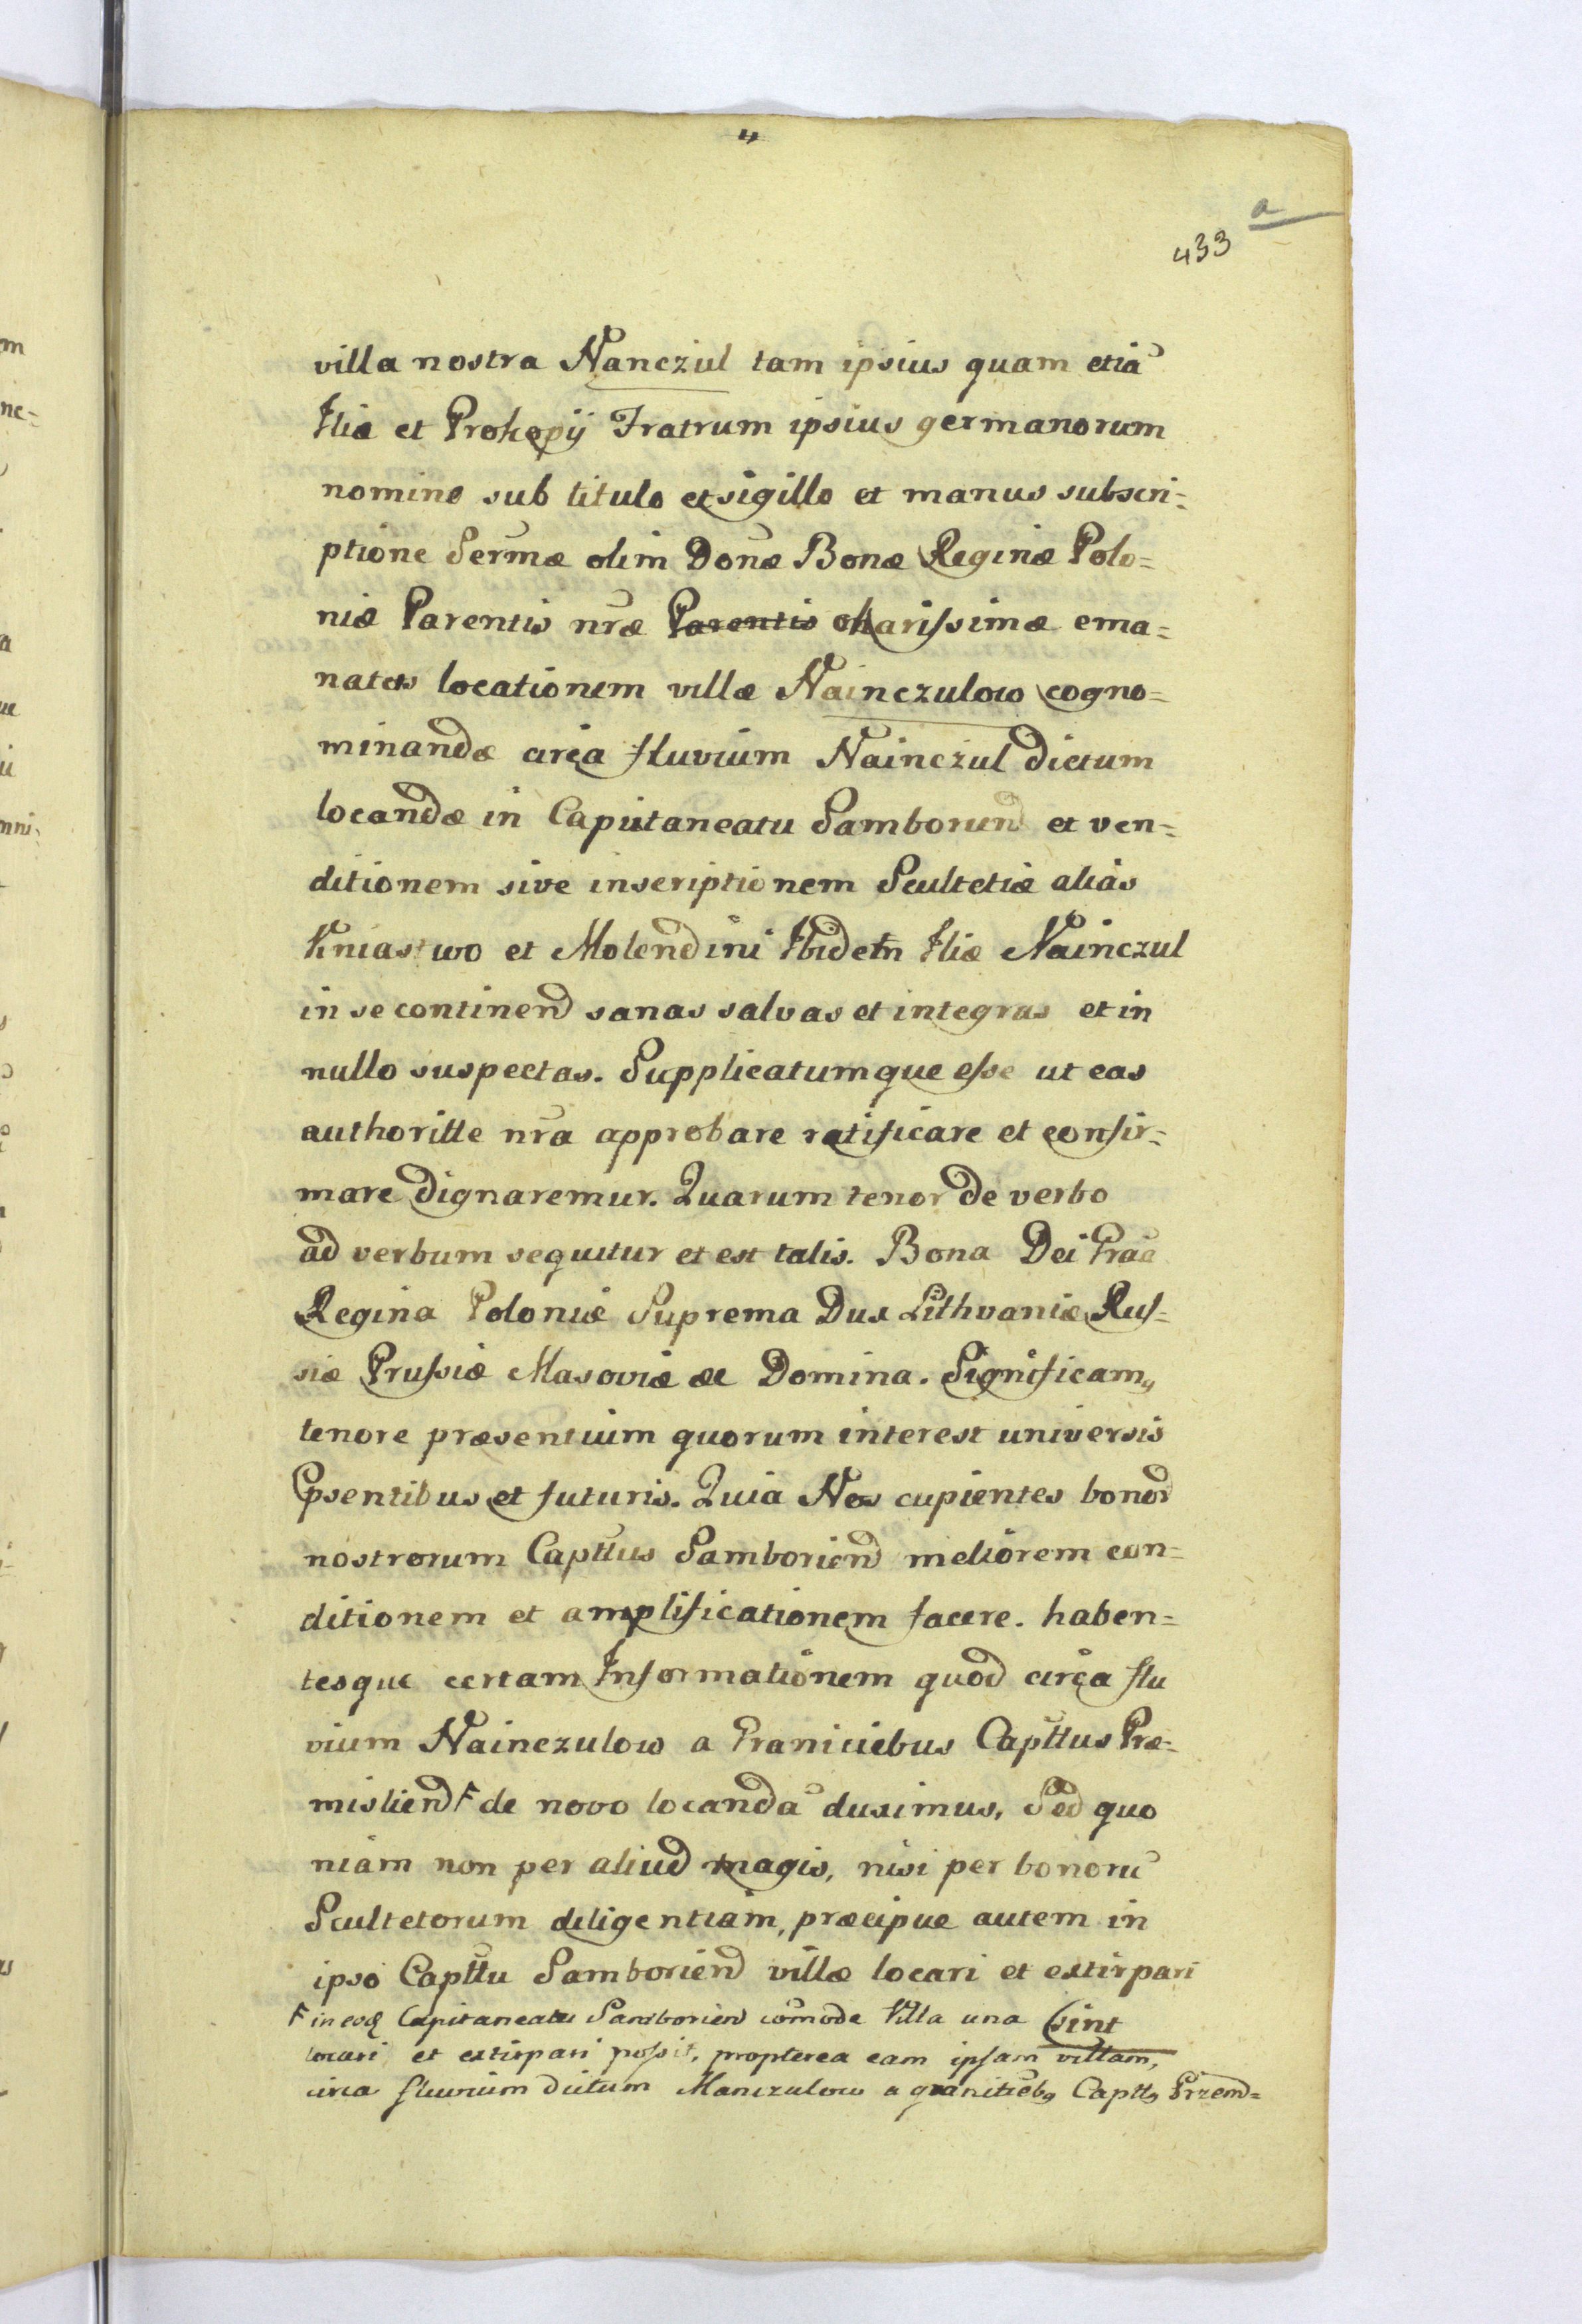 4
a
433
villa nostra Nanczul tam ipsius quam etiã
Iliæ et Prokopij Fratrum ipsius germanorum
nomine sub titulo et sigillo et manus subscri=
ptione Serm̃æ olim Don̄æ Bonæ Reginæ Polo=
niæ Parentis nr̃æ Parentis charissimæ ema=
natas locationem villæ Nainczulow cogno=
minandæ circa fluvium Nainczul dictum
locandæ in Capitaneatu Samborien et ven=
ditionem sive inscriptionem Scultetiæ alias
Kniastwo et Molendini Ibidem Iliæ Nainczul
in se continen sanas salvas et integras et in
nullo suspectas. Supplicatumque esse ut eas
authoritte nr̃a approbare ratificare et confir=
mare dignaremur. Quarum tenor de verbo
ad verbum sequitur et est talis. Bona Dei Graã
Regina Poloniæ Suprema Dux Lithvaniæ Rus=
siæ Prussiæ Masoviæ &c Domina. Significam9
tenore præsentium quorum interest universis
psentibus et futuris. Quia Nos cupientes bonor
nostrorum Capttus Samborien meliorem con=
ditionem et amplificationem facere. haben=
tesque certam Informationem quod circa flu
vium Nainczulow a Graniciebus Capttus Præ=
mislien F de novo locandã duximus, Sed quo
niam non per aliud magis, nisi per bonorũ
Scultetorum diligentiam, præcipue autem in
ipso Capttu Samborien villæ locari et extirpari
F in eodq Capitaneatu Samborien com̃ode Villa una (sint
locari et extirpari possit, propterea eam ipsam villam,
circa fluvium dictum Manczulow a granitieb9 Captt9 Przem=